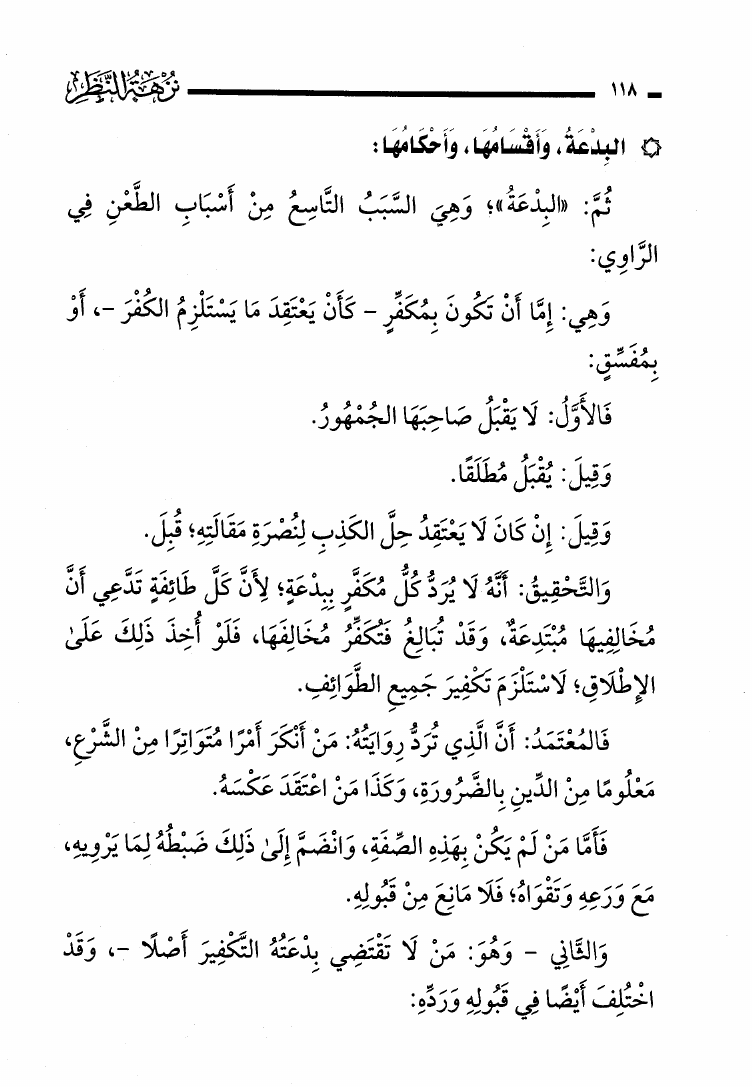 ١١٨ نُزْهَةُ النَّظَرِ
البِدْعَةُ، وَأَقْسَامُهَا، وَأَحْكَامُهَا:
ثُمَّ: «البِدْعَةُ»؛ وَهِيَ السَّبَبُ التَّاسِعُ مِنْ أَسْبَابِ الطَّعْنِ فِي
الرَّاوِي:
وَهِي: إِمَّا أَنْ تَكُونَ بِمُكَفِّرٍ - كَأَنْ يَعْتَقِدَ مَا يَسْتَلْزِمُ الكُفْرَ -، أَوْ
بِمُفَسِّقٍ:
فَالأَوَّلُ: لَا يَقْبَلُ صَاحِبَهَا الجُمْهُورُ.
وَقِيلَ: يُقْبَلُ مُطَلَقًا.
وَقِيلَ: إِنْ كَانَ لَا يَعْتَقِدُ حِلَّ الكَذِبِ لِنُصْرَةِ مَقَالَتِهِ؛ قُبِلَ.
وَالتَّحْقِيقُ: أَنَّهُ لَا يُرَدُّ كُلُّ مُكَفَّرٍ بِبِدْعَةٍ؛ لِأَنَّ كَلَّ طَائِفَةٍ تَدَّعِي أَنَّ
مُخَالِفِيهَا مُبْتَدِعَةٌ، وَقَدْ تُبَالِغُ فَتُكَفِّرُ مُخَالِفَهَا، فَلَوْ أُخِذَ ذَلِكَ عَلَىٰ
الإِطْلَاقِ؛ لَاسْتَلْزَمَ تَكْفِيرَ جَمِيعِ الطَّوَائِفِ.
فَالمُعْتَمَدُ: أَنَّ الَّذِي تُرَدُّ رِوَايَتُهُ: مَنْ أَنْكَرَ أَمْرًا مُتَوَاتِرًا مِنَ الشَّرْعِ،
مَعْلُومًا مِنَ الدِّينِ بِالضَّرُورَةِ، وَكَذَا مَنْ اعْتَقَدَ عَكْسَهُ.
فَأَمَّا مَنْ لَمْ يَكُنْ بِهَذِهِ الصِّفَةِ، وَانْضَمَّ إِلَىٰ ذَلِكَ ضَبْطُهُ لِمَا يَرْوِيهِ،
مَعَ وَرَعِهِ وَتَقْوَاهُ؛ فَلَا مَانِعَ مِنْ قَبُولِهِ.
وَالثَّانِي - وَهُوَ: مَنْ لَا تَقْتَضِي بِدْعَتُهُ التَّكْفِيرَ أَصْلًا -، وَقَدْ
اخْتُلِفَ أَيْضًا فِي قَبُولِهِ وَرَدِّهِ: